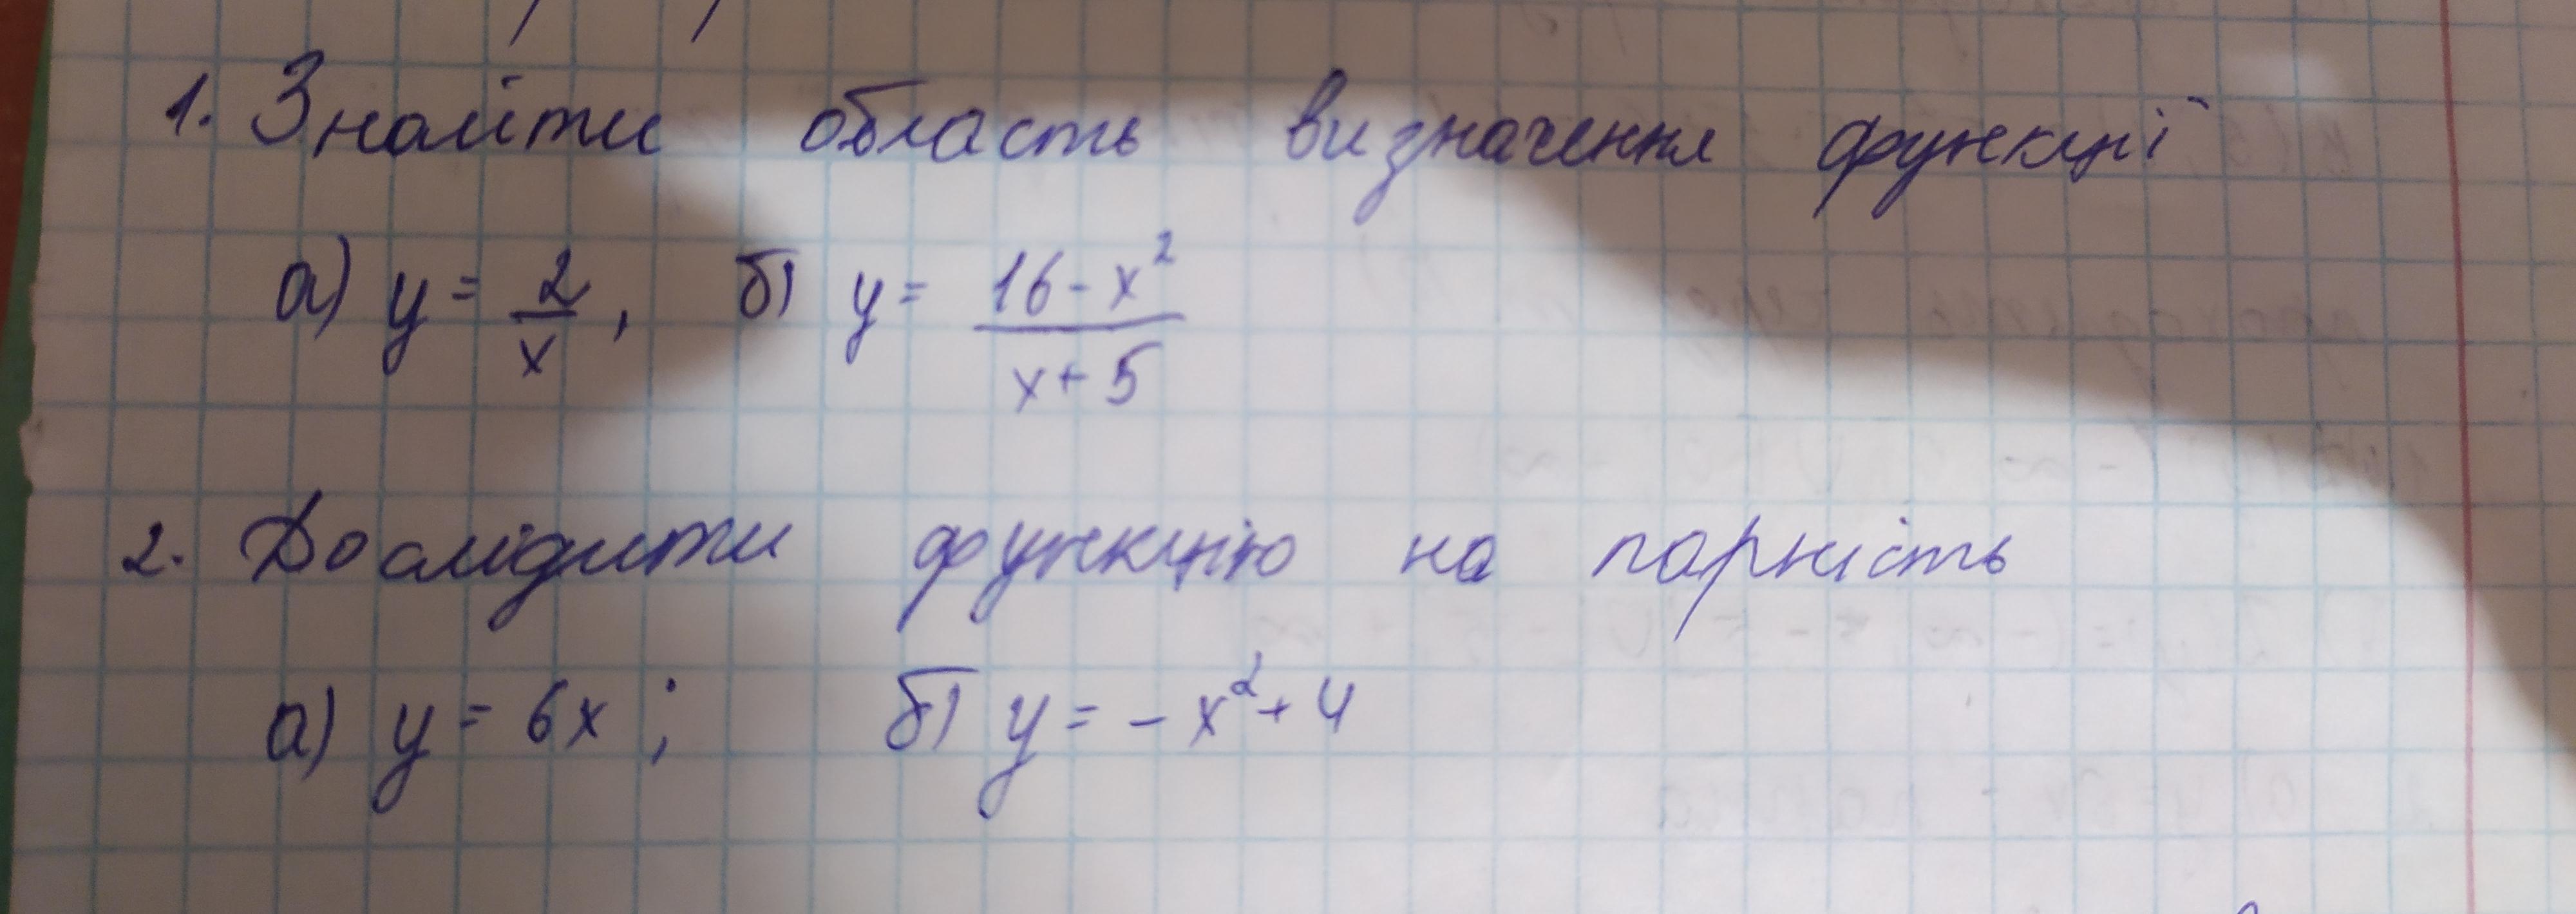 1. Знайти область визначення функції
а) y = 2/x, б) y = (16 - x²)/(x + 5)
2. Дослідити функцію на парність
а) y = 6x; б) y = -x² + 4